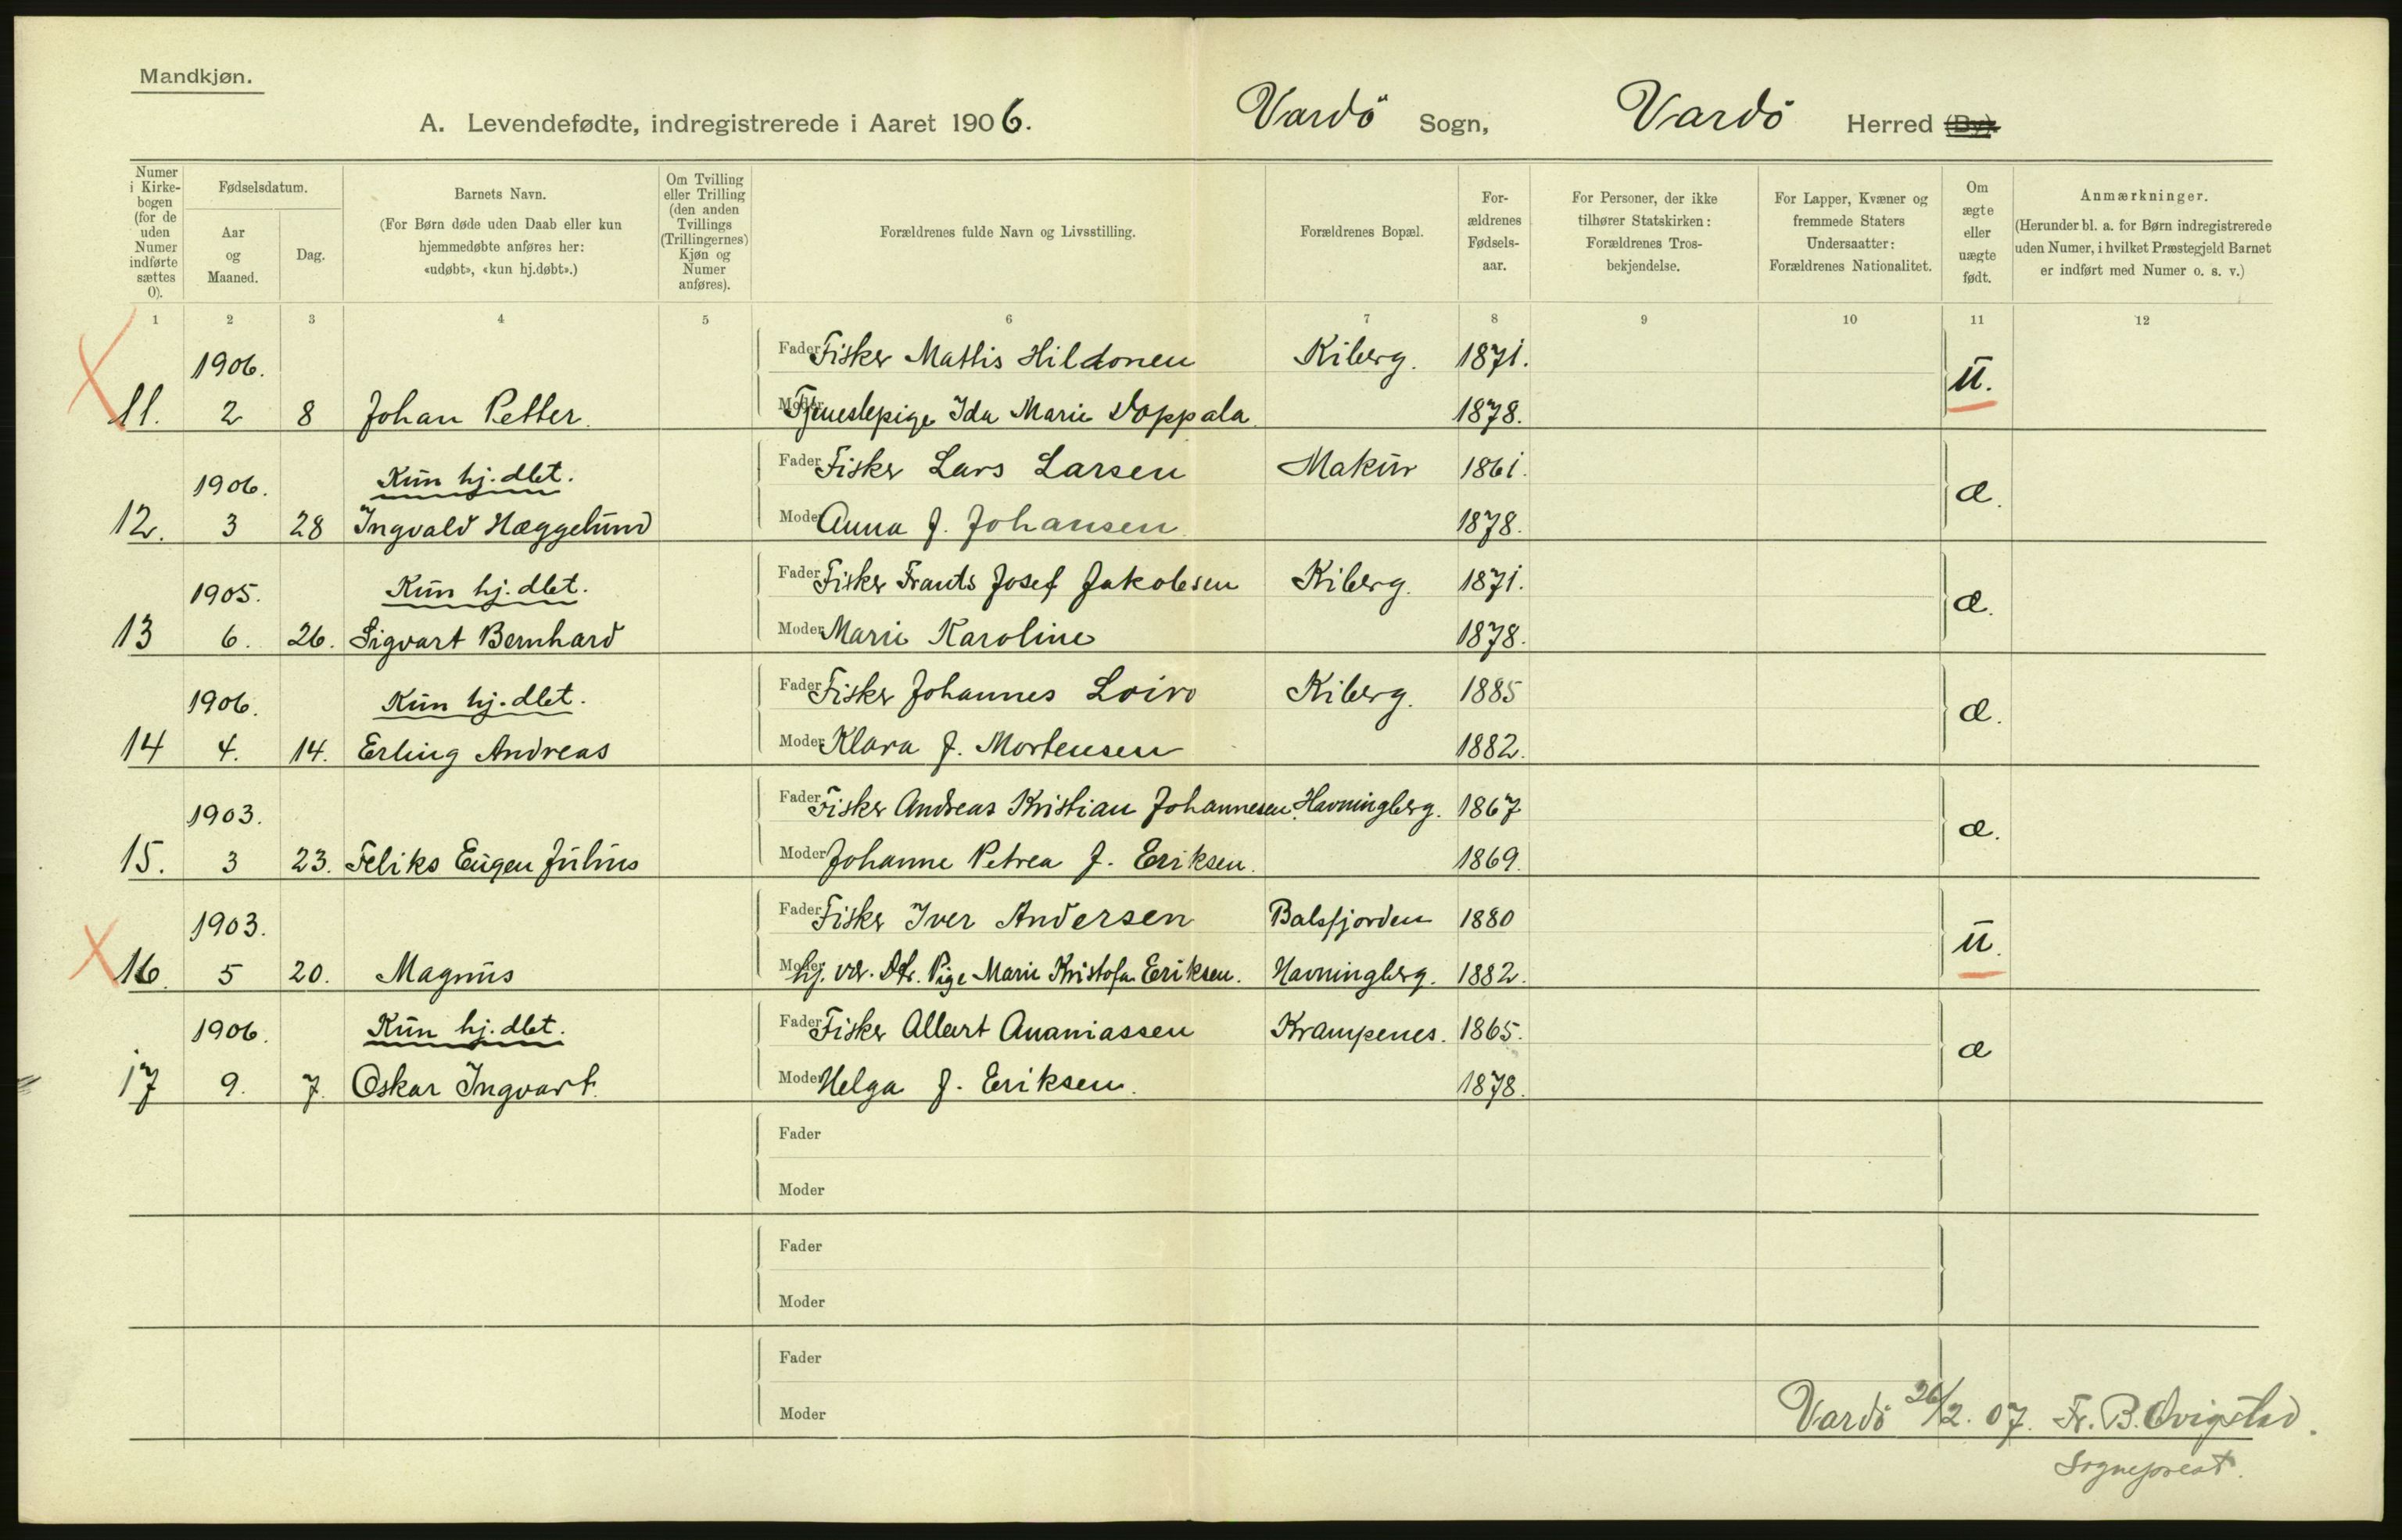 Mandkjøn.
A. Levendefødte, indregistrerede i Aaret 1906. Vardö Sogn, Vardö Herred (By).
Numer i Kirkebogen (for de uden Numer indførte sættes 0).
Fødselsdatum.
Aar og Maaned.
Dag.
Barnets Navn.
(For Børn døde uden Daab eller kun hjemmedøbte anføres her: «udøbt», «kun hj.døbt».)
Om Tvilling eller Trilling (den anden Tvillings (Trillingernes) Kjøn og Numer anføres).
Forældrenes fulde Navn og Livsstilling.
Forældrenes Bopæl.
For-ældrenes Fødsels-aar.
For Personer, der ikke tilhører Statskirken: Forældrenes Tros-bekjendelse.
For Lapper, Kvæner og fremmede Staters Undersaatter: Forældrenes Nationalitet.
Om ægte eller uægte født.
Anmærkninger.
(Herunder bl. a. for Børn indregistrerede uden Numer, i hvilket Præstegjeld Barnet er indført med Numer o. s. v.)
1 2 3 4 5 6 7 8 9 10 11 12
1906. Fader Fisker Mattis Hildonen Kiberg. 1871. u.
11. 2 8 Johan Petter. Moder Tjenestepige Ida Marie Poppala. 1878.
1906. Kun hj. dbt. Fader Fisker Lars Larsen Makur 1861. æ.
12. 3 28 Ingvald Hæggelund Moder Anna f. Johansen. 1878.
1905. Kun hj. dbt. Fader Fisker Frants Josef Jakobsen Kiberg. 1871. æ.
13 6. 26. Sigvart Bernhard Moder Marie Karoline 1878.
1906. Kun hj. dbt. Fader Fisker Johannes Loivo Kiberg. 1885 æ.
14 4. 14. Erling Andreas Moder Klara f. Mortensen 1882.
1903. Fader Fisker Andreas Kristian Johannesen. Havningberg. 1867 æ.
15. 3 23. Feliks Eugen Julius Moder Johanne Petrea f. Eriksen. 1869.
1903. Fader Fisker Iver Andersen Balsfjorden 1880 u.
16. 5 20. Magnus Moder hj. vær. Dtr. Pige Marie Kristofa Eriksen. Havningberg. 1882.
1906. Kun hj. dbt. Fader Fisker Albert Ananiassen Krampenes. 1865. æ
17 9. 7. Oskar Ingvart. Moder Helga f. Eriksen. 1878.
Fader
Moder
Fader
Moder
Fader
Moder
Vardö 26/2. 07. Fr. B. Qvigstad.
Sogneprest.